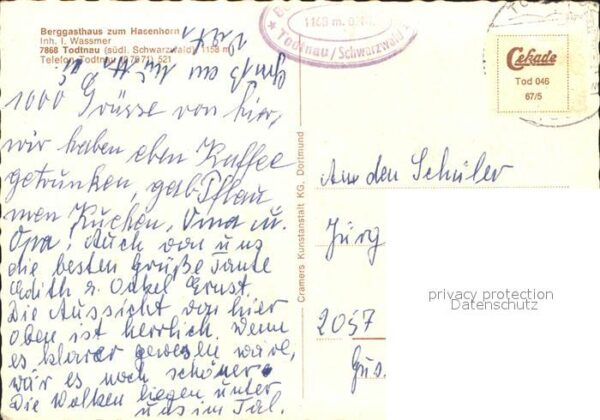 Berggasthaus zum Hasenhorn
Inh. I. Wassmer
7868 Todtnau (südl. Schwarzwald) 1158 m
Telefon Todtnau (07671) 521
1158 m. ü.
Todtnau / Schwarzwald
Cekade
Tod 046
67/5
1000 Grüsse von hier,
wir haben eben Kaffee
getrunken, gab Pflau
men Kuchen, Oma u.
Opa, Auch von uns
die besten Grüße Tante
Edith u. Onkel Ernst.
Die Aussicht von hier
oben ist herrlich. Wenn
es klarer gewesen wäre,
wär es noch schöner
Die Wolken liegen unter
uns im Tal.
Cramers Kunstanstalt KG, Dortmund
An den Schüler
Jürg
2057
privacy protection
Datenschutz